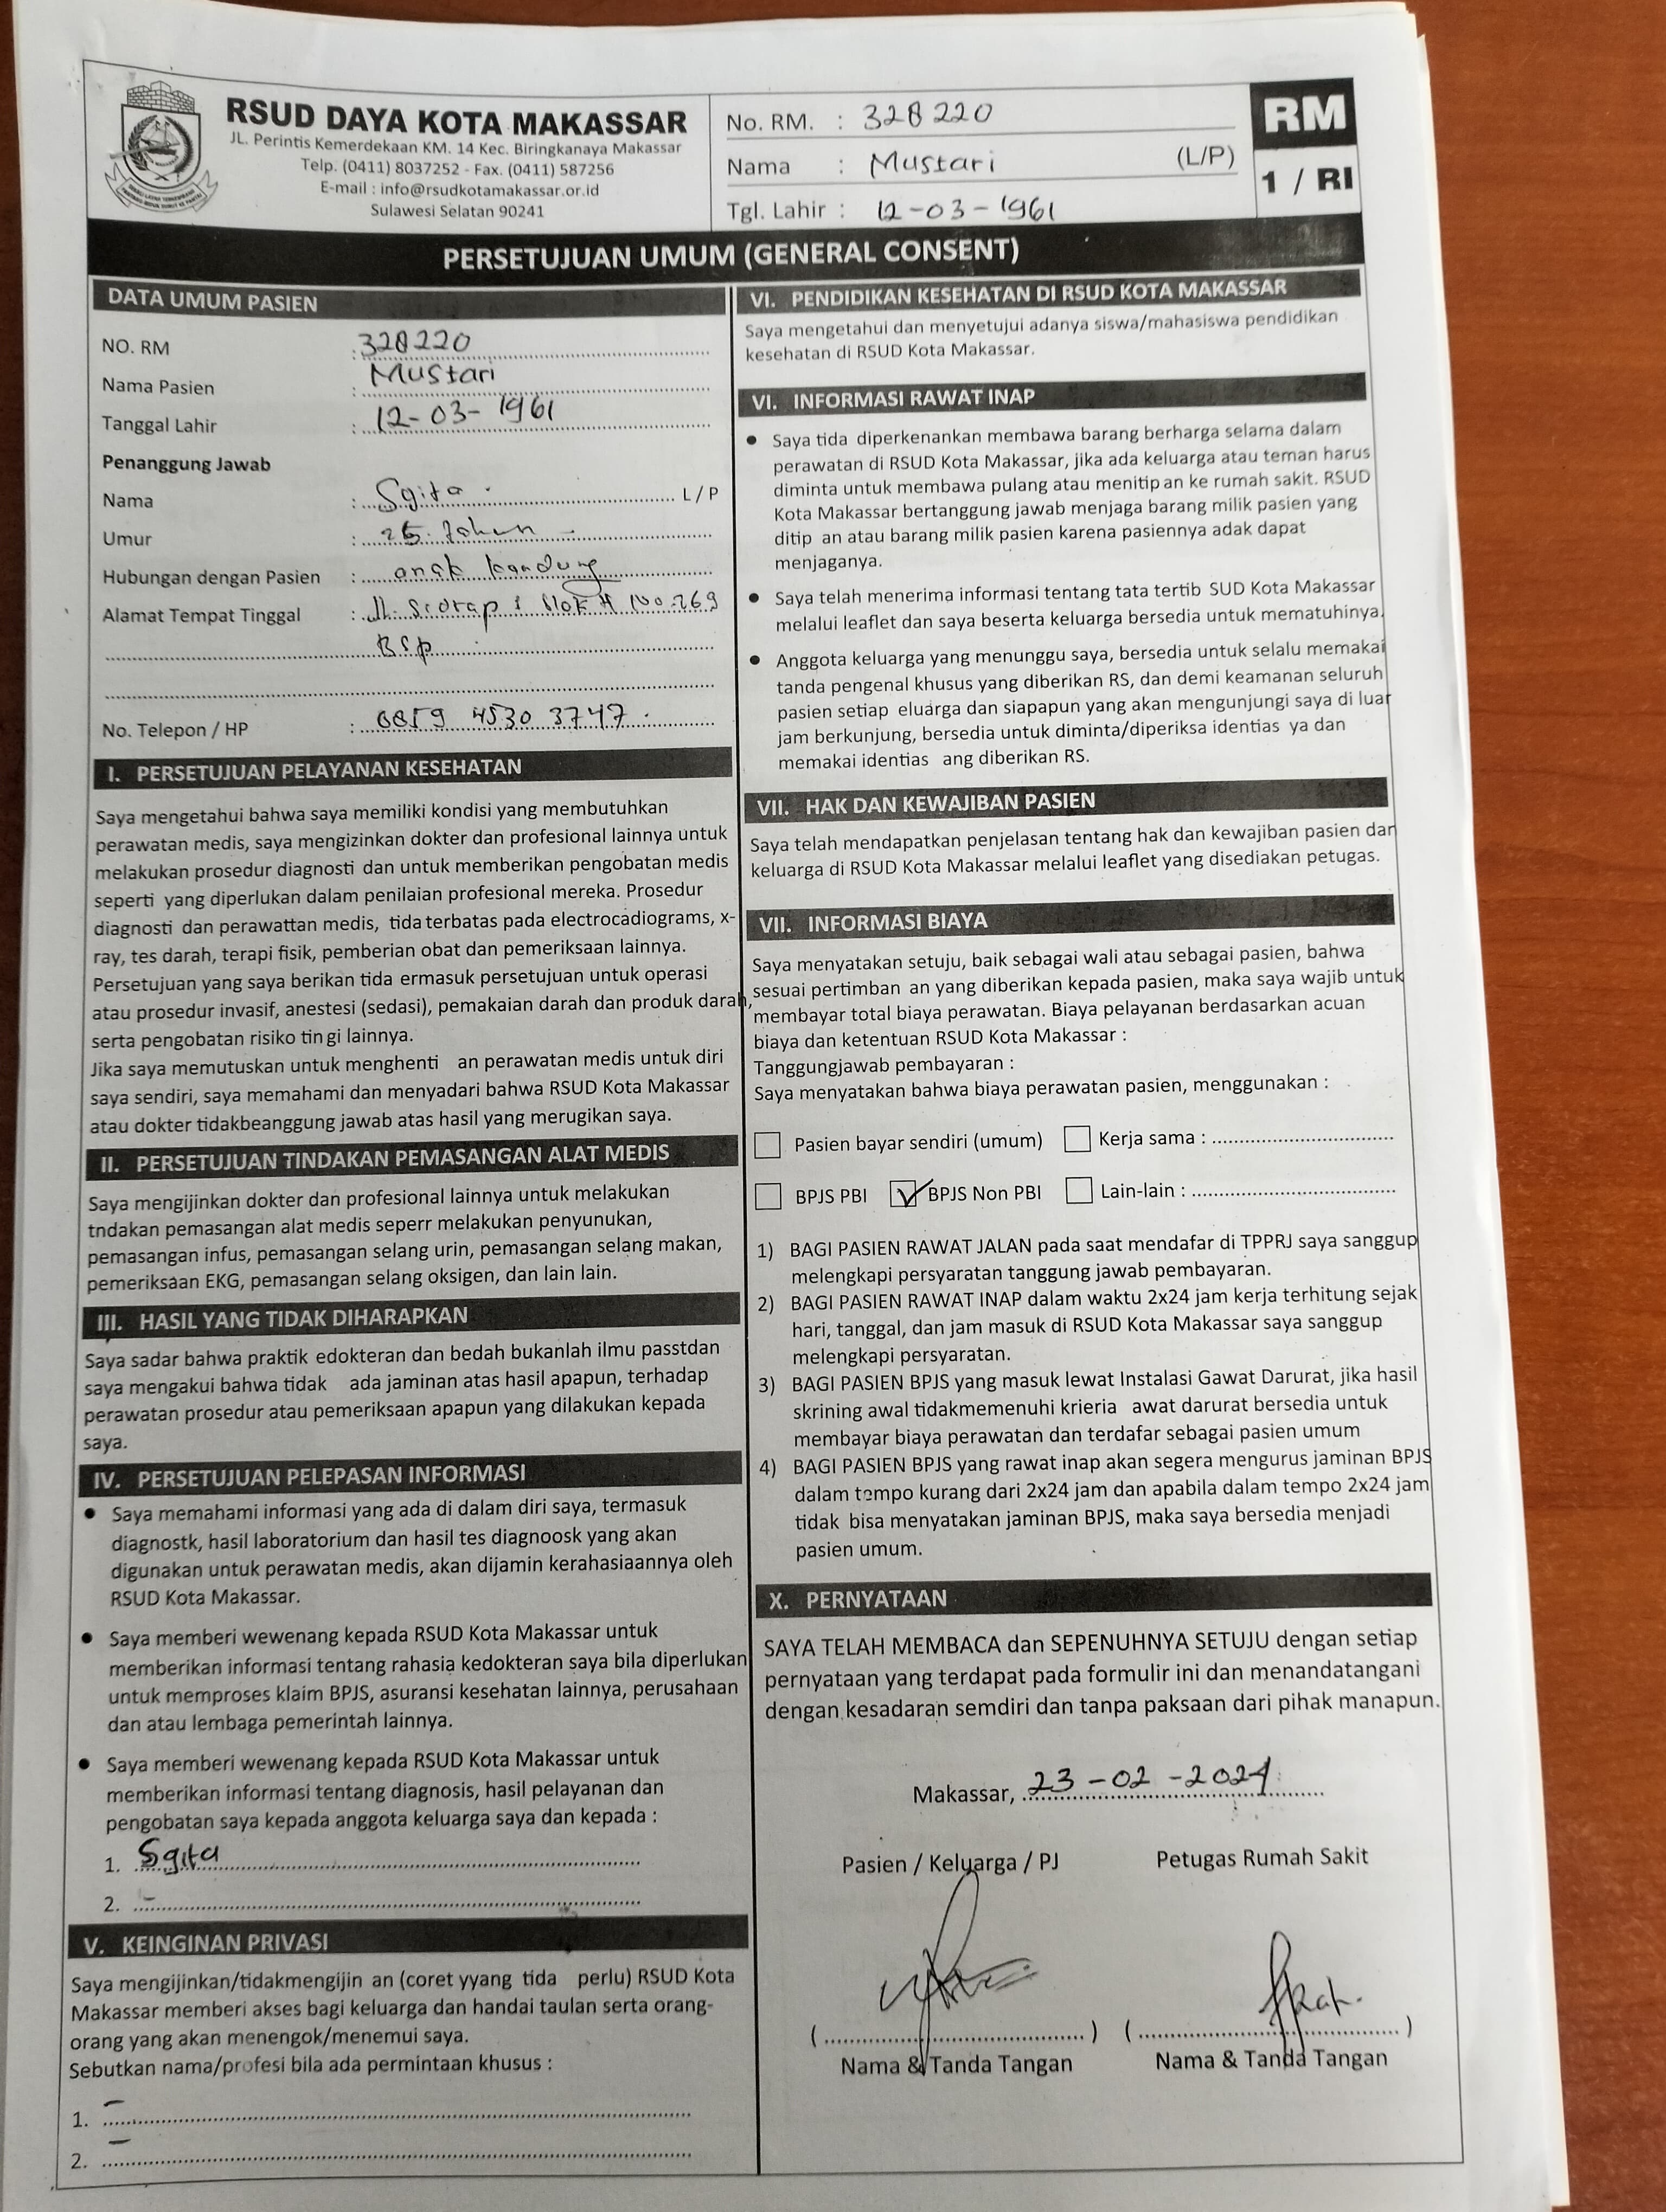 RSUD DAYA KOTA MAKASSAR
JL. Perintis Kemerdekaan KM. 14 Kec. Biringkanaya Makassar
Telp. (0411) 8037252 - Fax. (0411) 587256
E-mail : info@rsudkotamakassar.or.id
Sulawesi Selatan 90241
No. RM. : 328220
Nama : Mustari (L/P)
Tgl. Lahir : 12-03-1961
RM
1 / RI
PERSETUJUAN UMUM (GENERAL CONSENT)
DATA UMUM PASIEN
NO. RM : 328220
Nama Pasien : Mustari
Tanggal Lahir : 12-03-1961
Penanggung Jawab
Nama : Sgita L / P
Umur : 25 Tahun
Hubungan dengan Pasien : anak kandung
Alamat Tempat Tinggal : Jl. Blok H No. 269
BSP
No. Telepon / HP : 0859 4530 3747
I. PERSETUJUAN PELAYANAN KESEHATAN
Saya mengetahui bahwa saya memiliki kondisi yang membutuhkan
perawatan medis, saya mengizinkan dokter dan profesional lainnya untuk
melakukan prosedur diagnosti dan untuk memberikan pengobatan medis
seperti yang diperlukan dalam penilaian profesional mereka. Prosedur
diagnosti dan perawattan medis, tida terbatas pada electrocadiograms, x-
ray, tes darah, terapi fisik, pemberian obat dan pemeriksaan lainnya.
Persetujuan yang saya berikan tida ermasuk persetujuan untuk operasi
atau prosedur invasif, anestesi (sedasi), pemakaian darah dan produk darah,
serta pengobatan risiko tin gi lainnya.
Jika saya memutuskan untuk menghenti an perawatan medis untuk diri
saya sendiri, saya memahami dan menyadari bahwa RSUD Kota Makassar
atau dokter tidakbeanggung jawab atas hasil yang merugikan saya.
II. PERSETUJUAN TINDAKAN PEMASANGAN ALAT MEDIS
Saya mengijinkan dokter dan profesional lainnya untuk melakukan
tndakan pemasangan alat medis seperr melakukan penyunukan,
pemasangan infus, pemasangan selang urin, pemasangan selang makan,
pemeriksaan EKG, pemasangan selang oksigen, dan lain lain.
III. HASIL YANG TIDAK DIHARAPKAN
Saya sadar bahwa praktik edokteran dan bedah bukanlah ilmu passtdan
saya mengakui bahwa tidak ada jaminan atas hasil apapun, terhadap
perawatan prosedur atau pemeriksaan apapun yang dilakukan kepada
saya.
IV. PERSETUJUAN PELEPASAN INFORMASI
• Saya memahami informasi yang ada di dalam diri saya, termasuk
diagnostk, hasil laboratorium dan hasil tes diagnoosk yang akan
digunakan untuk perawatan medis, akan dijamin kerahasiaannya oleh
RSUD Kota Makassar.
• Saya memberi wewenang kepada RSUD Kota Makassar untuk
memberikan informasi tentang rahasia kedokteran saya bila diperlukan
untuk memproses klaim BPJS, asuransi kesehatan lainnya, perusahaan
dan atau lembaga pemerintah lainnya.
• Saya memberi wewenang kepada RSUD Kota Makassar untuk
memberikan informasi tentang diagnosis, hasil pelayanan dan
pengobatan saya kepada anggota keluarga saya dan kepada :
1. Sgita
2. -
V. KEINGINAN PRIVASI
Saya mengijinkan/tidakmengijin an (coret yyang tida perlu) RSUD Kota
Makassar memberi akses bagi keluarga dan handai taulan serta orang-
orang yang akan menengok/menemui saya.
Sebutkan nama/profesi bila ada permintaan khusus :
1. -
2. -
VI. PENDIDIKAN KESEHATAN DI RSUD KOTA MAKASSAR
Saya mengetahui dan menyetujui adanya siswa/mahasiswa pendidikan
kesehatan di RSUD Kota Makassar.
VI. INFORMASI RAWAT INAP
• Saya tida diperkenankan membawa barang berharga selama dalam
perawatan di RSUD Kota Makassar, jika ada keluarga atau teman harus
diminta untuk membawa pulang atau menitip an ke rumah sakit. RSUD
Kota Makassar bertanggung jawab menjaga barang milik pasien yang
ditip an atau barang milik pasien karena pasiennya adak dapat
menjaganya.
• Saya telah menerima informasi tentang tata tertib SUD Kota Makassar
melalui leaflet dan saya beserta keluarga bersedia untuk mematuhinya.
• Anggota keluarga yang menunggu saya, bersedia untuk selalu memakai
tanda pengenal khusus yang diberikan RS, dan demi keamanan seluruh
pasien setiap eluarga dan siapapun yang akan mengunjungi saya di luar
jam berkunjung, bersedia untuk diminta/diperiksa identias ya dan
memakai identias ang diberikan RS.
VII. HAK DAN KEWAJIBAN PASIEN
Saya telah mendapatkan penjelasan tentang hak dan kewajiban pasien dan
keluarga di RSUD Kota Makassar melalui leaflet yang disediakan petugas.
VII. INFORMASI BIAYA
Saya menyatakan setuju, baik sebagai wali atau sebagai pasien, bahwa
sesuai pertimban an yang diberikan kepada pasien, maka saya wajib untuk
membayar total biaya perawatan. Biaya pelayanan berdasarkan acuan
biaya dan ketentuan RSUD Kota Makassar :
Tanggungjawab pembayaran :
Saya menyatakan bahwa biaya perawatan pasien, menggunakan :
Pasien bayar sendiri (umum) Kerja sama :
BPJS PBI ✓ BPJS Non PBI Lain-lain :
1) BAGI PASIEN RAWAT JALAN pada saat mendafar di TPPRJ saya sanggup
melengkapi persyaratan tanggung jawab pembayaran.
2) BAGI PASIEN RAWAT INAP dalam waktu 2x24 jam kerja terhitung sejak
hari, tanggal, dan jam masuk di RSUD Kota Makassar saya sanggup
melengkapi persyaratan.
3) BAGI PASIEN BPJS yang masuk lewat Instalasi Gawat Darurat, jika hasil
skrining awal tidakmemenuhi krieria awat darurat bersedia untuk
membayar biaya perawatan dan terdafar sebagai pasien umum
4) BAGI PASIEN BPJS yang rawat inap akan segera mengurus jaminan BPJS
dalam tempo kurang dari 2x24 jam dan apabila dalam tempo 2x24 jam
tidak bisa menyatakan jaminan BPJS, maka saya bersedia menjadi
pasien umum.
X. PERNYATAAN
SAYA TELAH MEMBACA dan SEPENUHNYA SETUJU dengan setiap
pernyataan yang terdapat pada formulir ini dan menandatangani
dengan kesadaran semdiri dan tanpa paksaan dari pihak manapun.
Makassar, 23-02-2024
Pasien / Keluarga / PJ Petugas Rumah Sakit
( ) ( )
Nama & Tanda Tangan Nama & Tanda Tangan